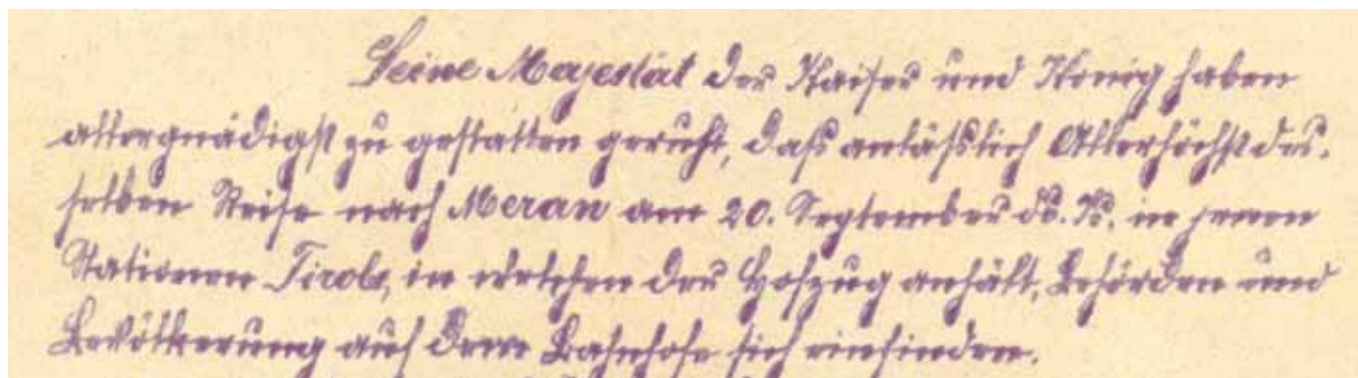 Seine Majestät der Kaiser und König haben
allergnädigst zu gestatten geruht, daß anläßlich Allerhöchst des-
selben Reise nach Meran am 20. September ds. Js. in jenen
Stationen Tirols, in welchen der Hofzug anhält, Behörden und
Bevölkerung auf dem Bahnhofe sich einfinden.